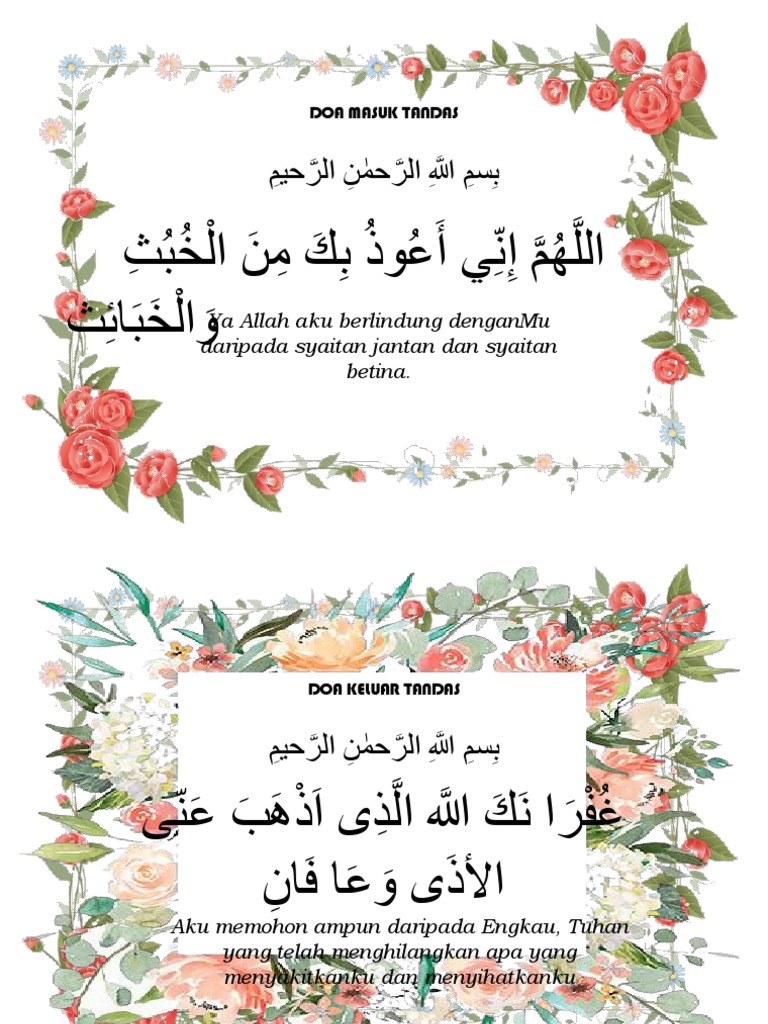 DOA MASUK TANDAS
بِسمِ اللَّهِ الرَّحمٰنِ الرَّحيمِ
اللَّهُمَّ إِنِّي أَعُوذُ بِكَ مِنَ الْخُبُثِ
وَالْخَبَائِثِ
Ya Allah aku berlindung denganMu
daripada syaitan jantan dan syaitan
betina.
DOA KELUAR TANDAS
بِسمِ اللَّهِ الرَّحمٰنِ الرَّحيمِ
غُفْرَا نَكَ اللَّه الَّذِى اَذْهَبَ عَنِّىَ
الأذَى وَعَا فَانِ
Aku memohon ampun daripada Engkau, Tuhan
yang telah menghilangkan apa yang
menyakitkanku dan menyihatkanku